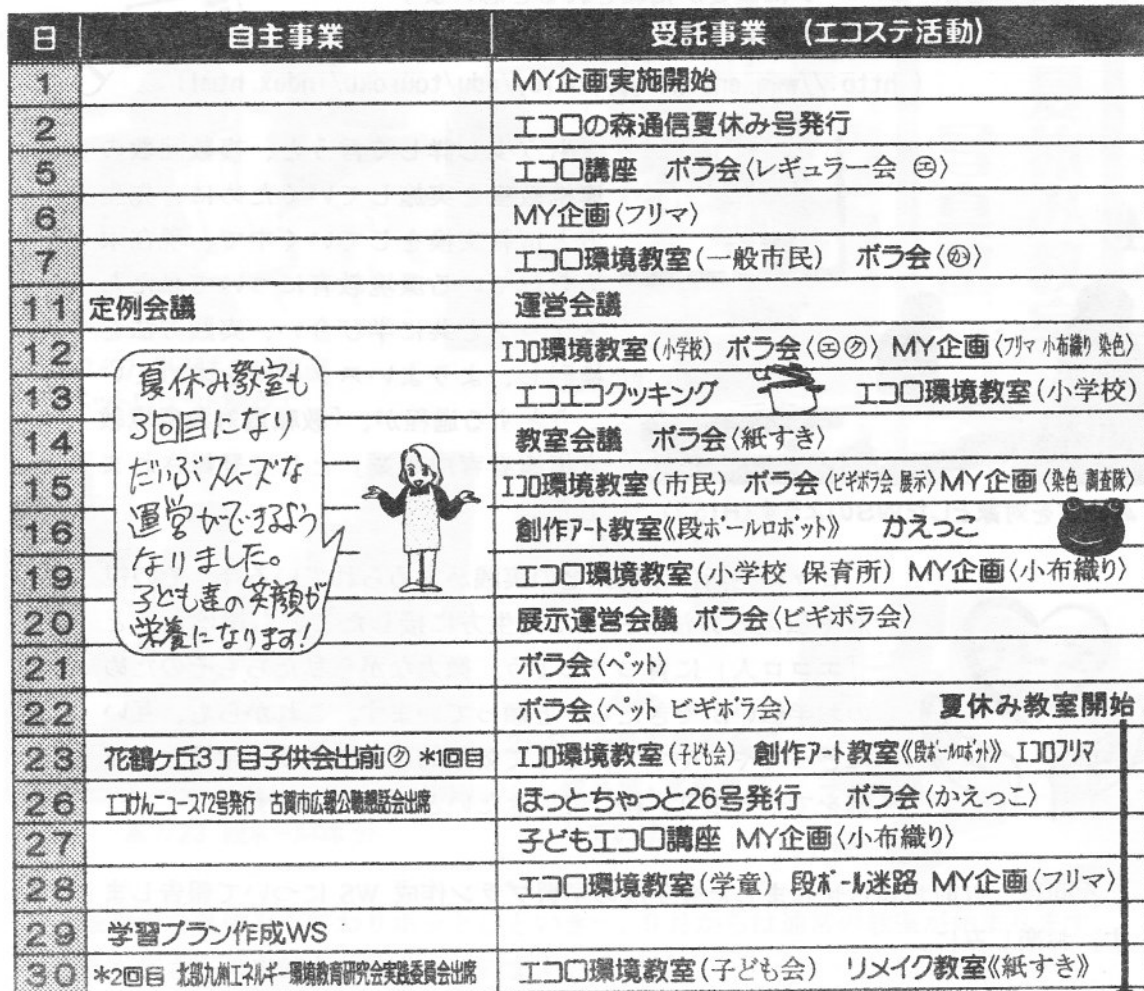 日 自主事業 受託事業 (エコステ活動)
1 MY企画実施開始
2 エコロの森通信夏休み号発行
5 エコロ講座 ボラ会〈レギュラー会 ㋓〉
6 MY企画〈フリマ〉
7 エコロ環境教室(一般市民) ボラ会〈㋕〉
11 定例会議 運営会議
12 エコロ環境教室(小学校) ボラ会〈㋓㋗〉 MY企画〈フリマ 小布織り 染色〉
13 エコエコクッキング エコロ環境教室(小学校)
14 教室会議 ボラ会〈紙すき〉
15 エコロ環境教室(市民) ボラ会〈ビギボラ会 展示〉 MY企画〈染色 調査隊〉
16 創作アート教室《段ボールロボット》 かえっこ
19 エコロ環境教室(小学校 保育所) MY企画〈小布織り〉
20 展示運営会議 ボラ会〈ビギボラ会〉
21 ボラ会〈ペット〉
22 ボラ会〈ペット ビギボラ会〉 夏休み教室開始
夏休み教室も
3回目になり
だいぶスムーズな
運営ができるよう
なりました。
子ども達の笑顔が
栄養になります!
23 花鶴ヶ丘3丁目子供会出前㋗ *1回目 エコロ環境教室(子ども会) 創作アート教室《段ボールロボット》 エコロフリマ
26 エコけんニュース72号発行 古賀市広報公聴懇話会出席 ほっとちゃっと26号発行 ボラ会〈かえっこ〉
27 子どもエコロ講座 MY企画〈小布織り〉
28 エコロ環境教室(学童) 段ボール迷路 MY企画〈フリマ〉
29 学習プラン作成WS
30 *2回目 北部九州エネルギー環境教育研究会実践委員会出席 エコロ環境教室(子ども会) リメイク教室《紙すき》